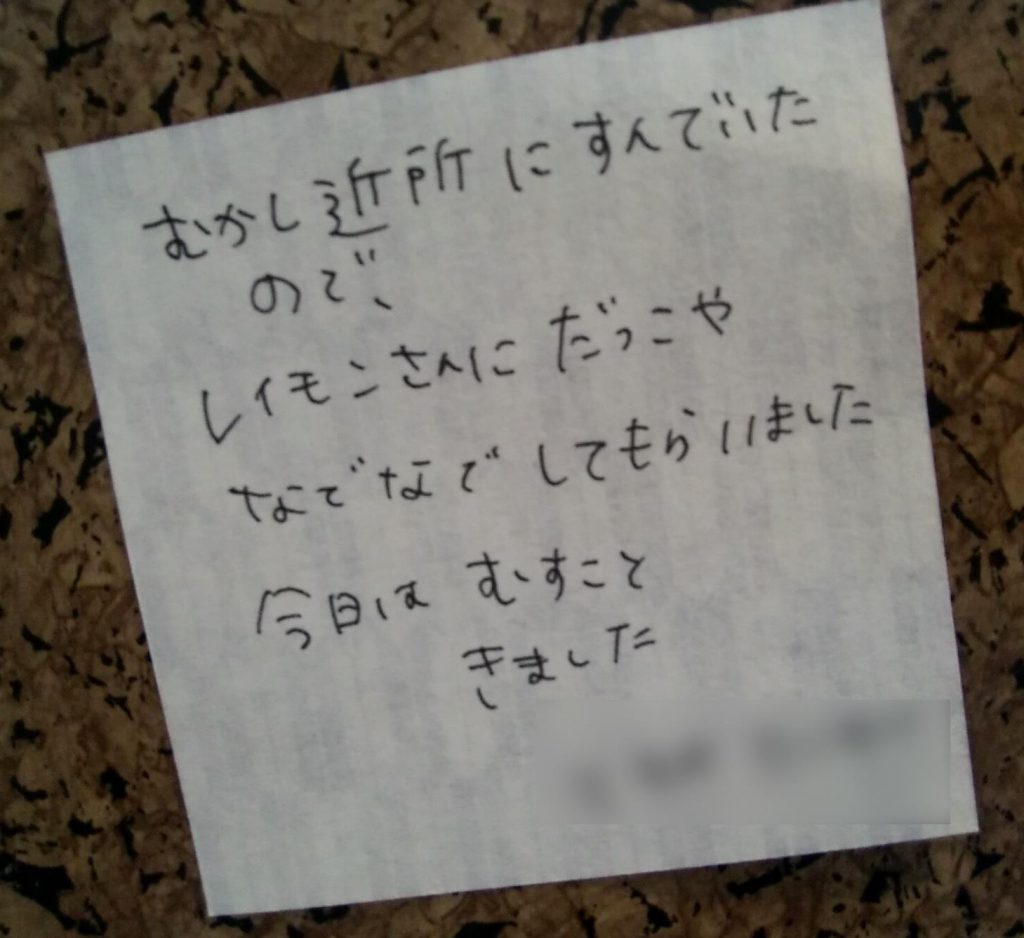 むかし近所にすんでいた
ので、
レイモンさんにだっこや
なでなでしてもらいました
今日は むすこと
きました